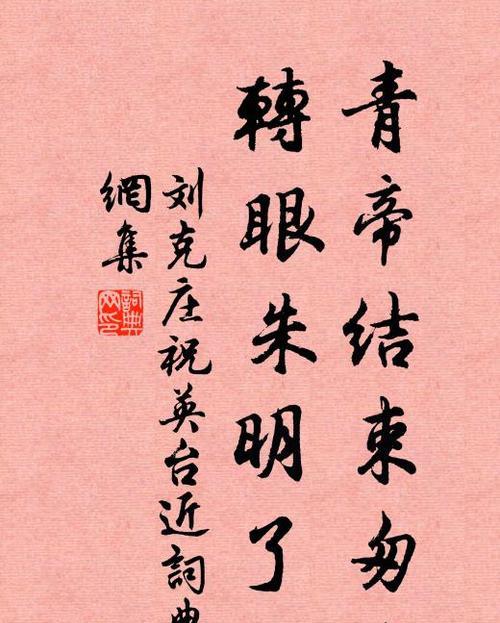 青帝結束匆
轉眼朱明了
刘克庄祝英台近詞典
網集
詞典
网印